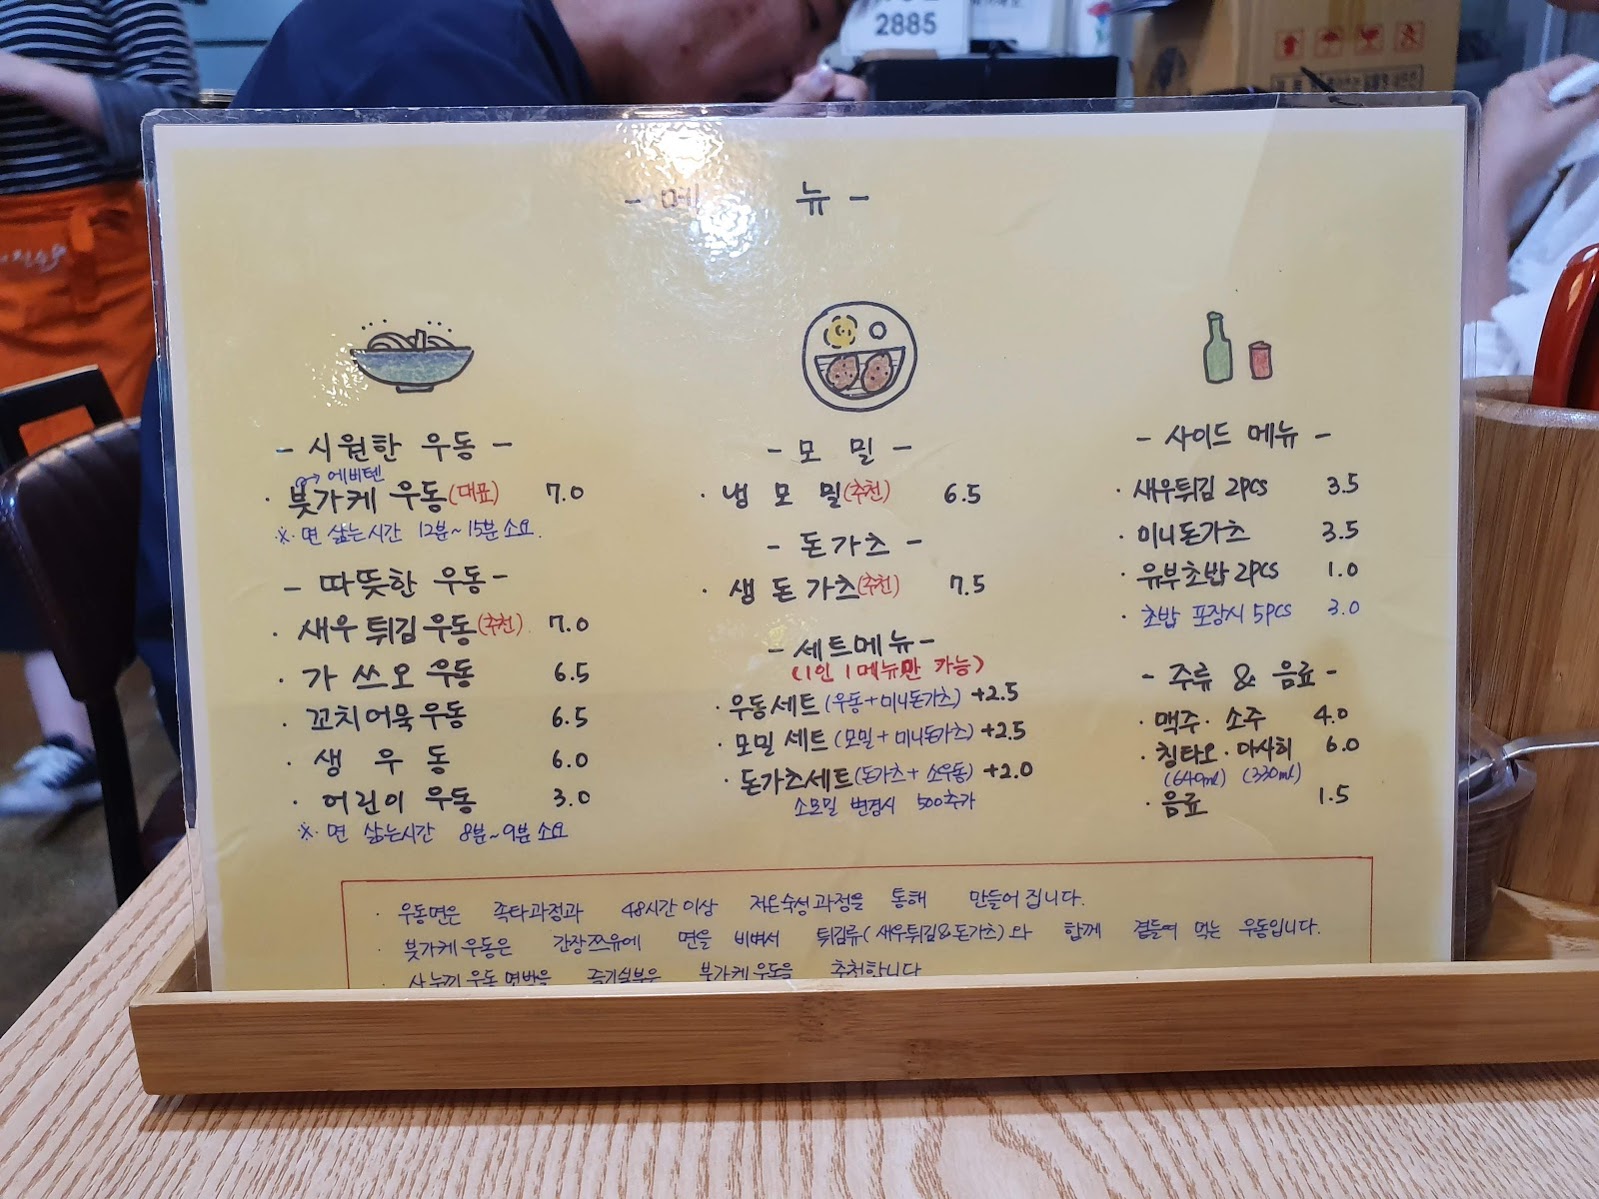 2885
- 메 뉴 -
- 시원한 우동 -
→ 에비텐
· 붓가케 우동(대표) 7.0
※ 면 삶는시간 12분~15분 소요.
- 따뜻한 우동 -
· 새우 튀김 우동(추천) 7.0
· 가 쓰 오 우동 6.5
· 꼬치어묵 우동 6.5
· 생 우 동 6.0
· 어린이 우동 3.0
※ 면 삶는시간 8분~9분 소요
- 모 밀 -
· 냉 모 밀(추천) 6.5
- 돈가츠 -
· 생 돈 가츠(추천) 7.5
- 세트메뉴 -
(1인 1메뉴만 가능)
· 우동세트(우동+미니돈가츠) +2.5
· 모밀 세트(모밀+미니돈가츠) +2.5
· 돈가츠세트(돈가츠+소우동) +2.0
소모밀 변경시 500추가
- 사이드 메뉴 -
· 새우튀김 2pcs 3.5
· 미니돈가츠 3.5
· 유부초밥 2pcs 1.0
· 초밥 포장시 5pcs 3.0
- 주류 & 음료 -
· 맥주 · 소주 4.0
· 칭타오 · 아사히 6.0
(640ml) (330ml)
· 음료 1.5
· 우동면은 족타과정과 48시간 이상 저온숙성 과정을 통해 만들어 집니다.
· 붓가케 우동은 간장쯔유에 면을 비벼서 튀김류(새우튀김&돈가츠)와 함께 곁들여 먹는 우동입니다.
· 우동 면발을 즐기실분은 붓가케 우동을 추천합니다